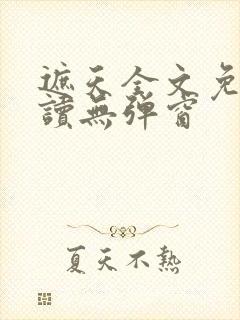 遮天全文免
讀無彈窗
夏天不熱